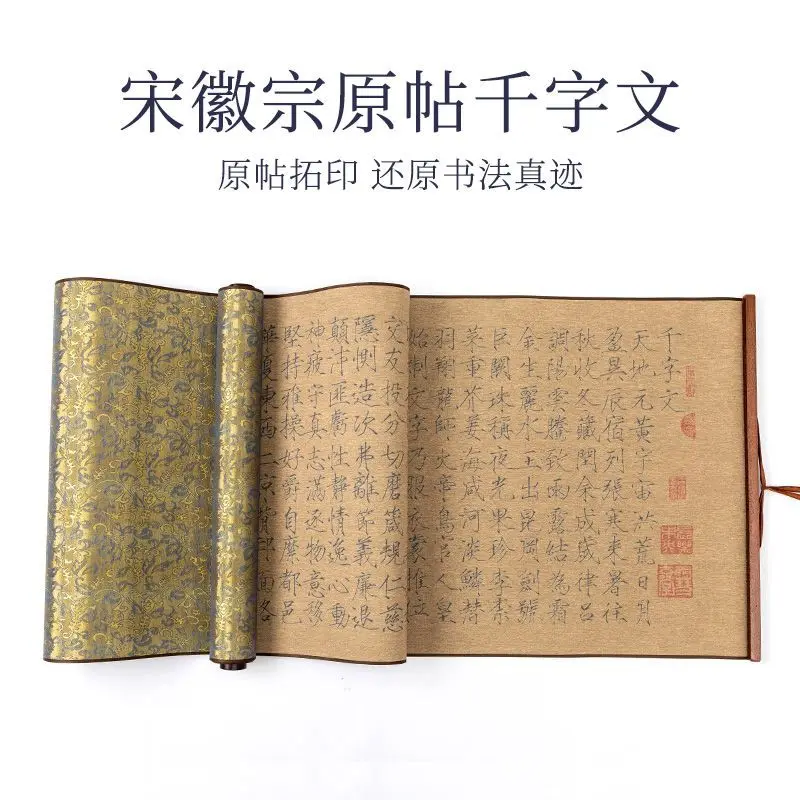 宋徽宗原帖千字文
原帖拓印 还原书法真迹
千字文
天地元黃宇宙洪荒日月
盈昃辰宿列張寒来暑往
秋收冬藏閏余成歲律呂
調陽雲騰致雨露結為霜
金生麗水玉出崑岡劍號
巨闕珠稱夜光果珍李柰
菜重芥姜海咸河淡鱗潛
羽翔龍師火帝鳥官人皇
始制文字乃服衣裳推位
交友投分切磨箴規仁慈
隱惻造次弗離節義廉退
顛沛匪虧性静情逸心動
神疲守真志滿逐物意移
堅持雅操好爵自縻都邑
華夏東西二京背邙面洛